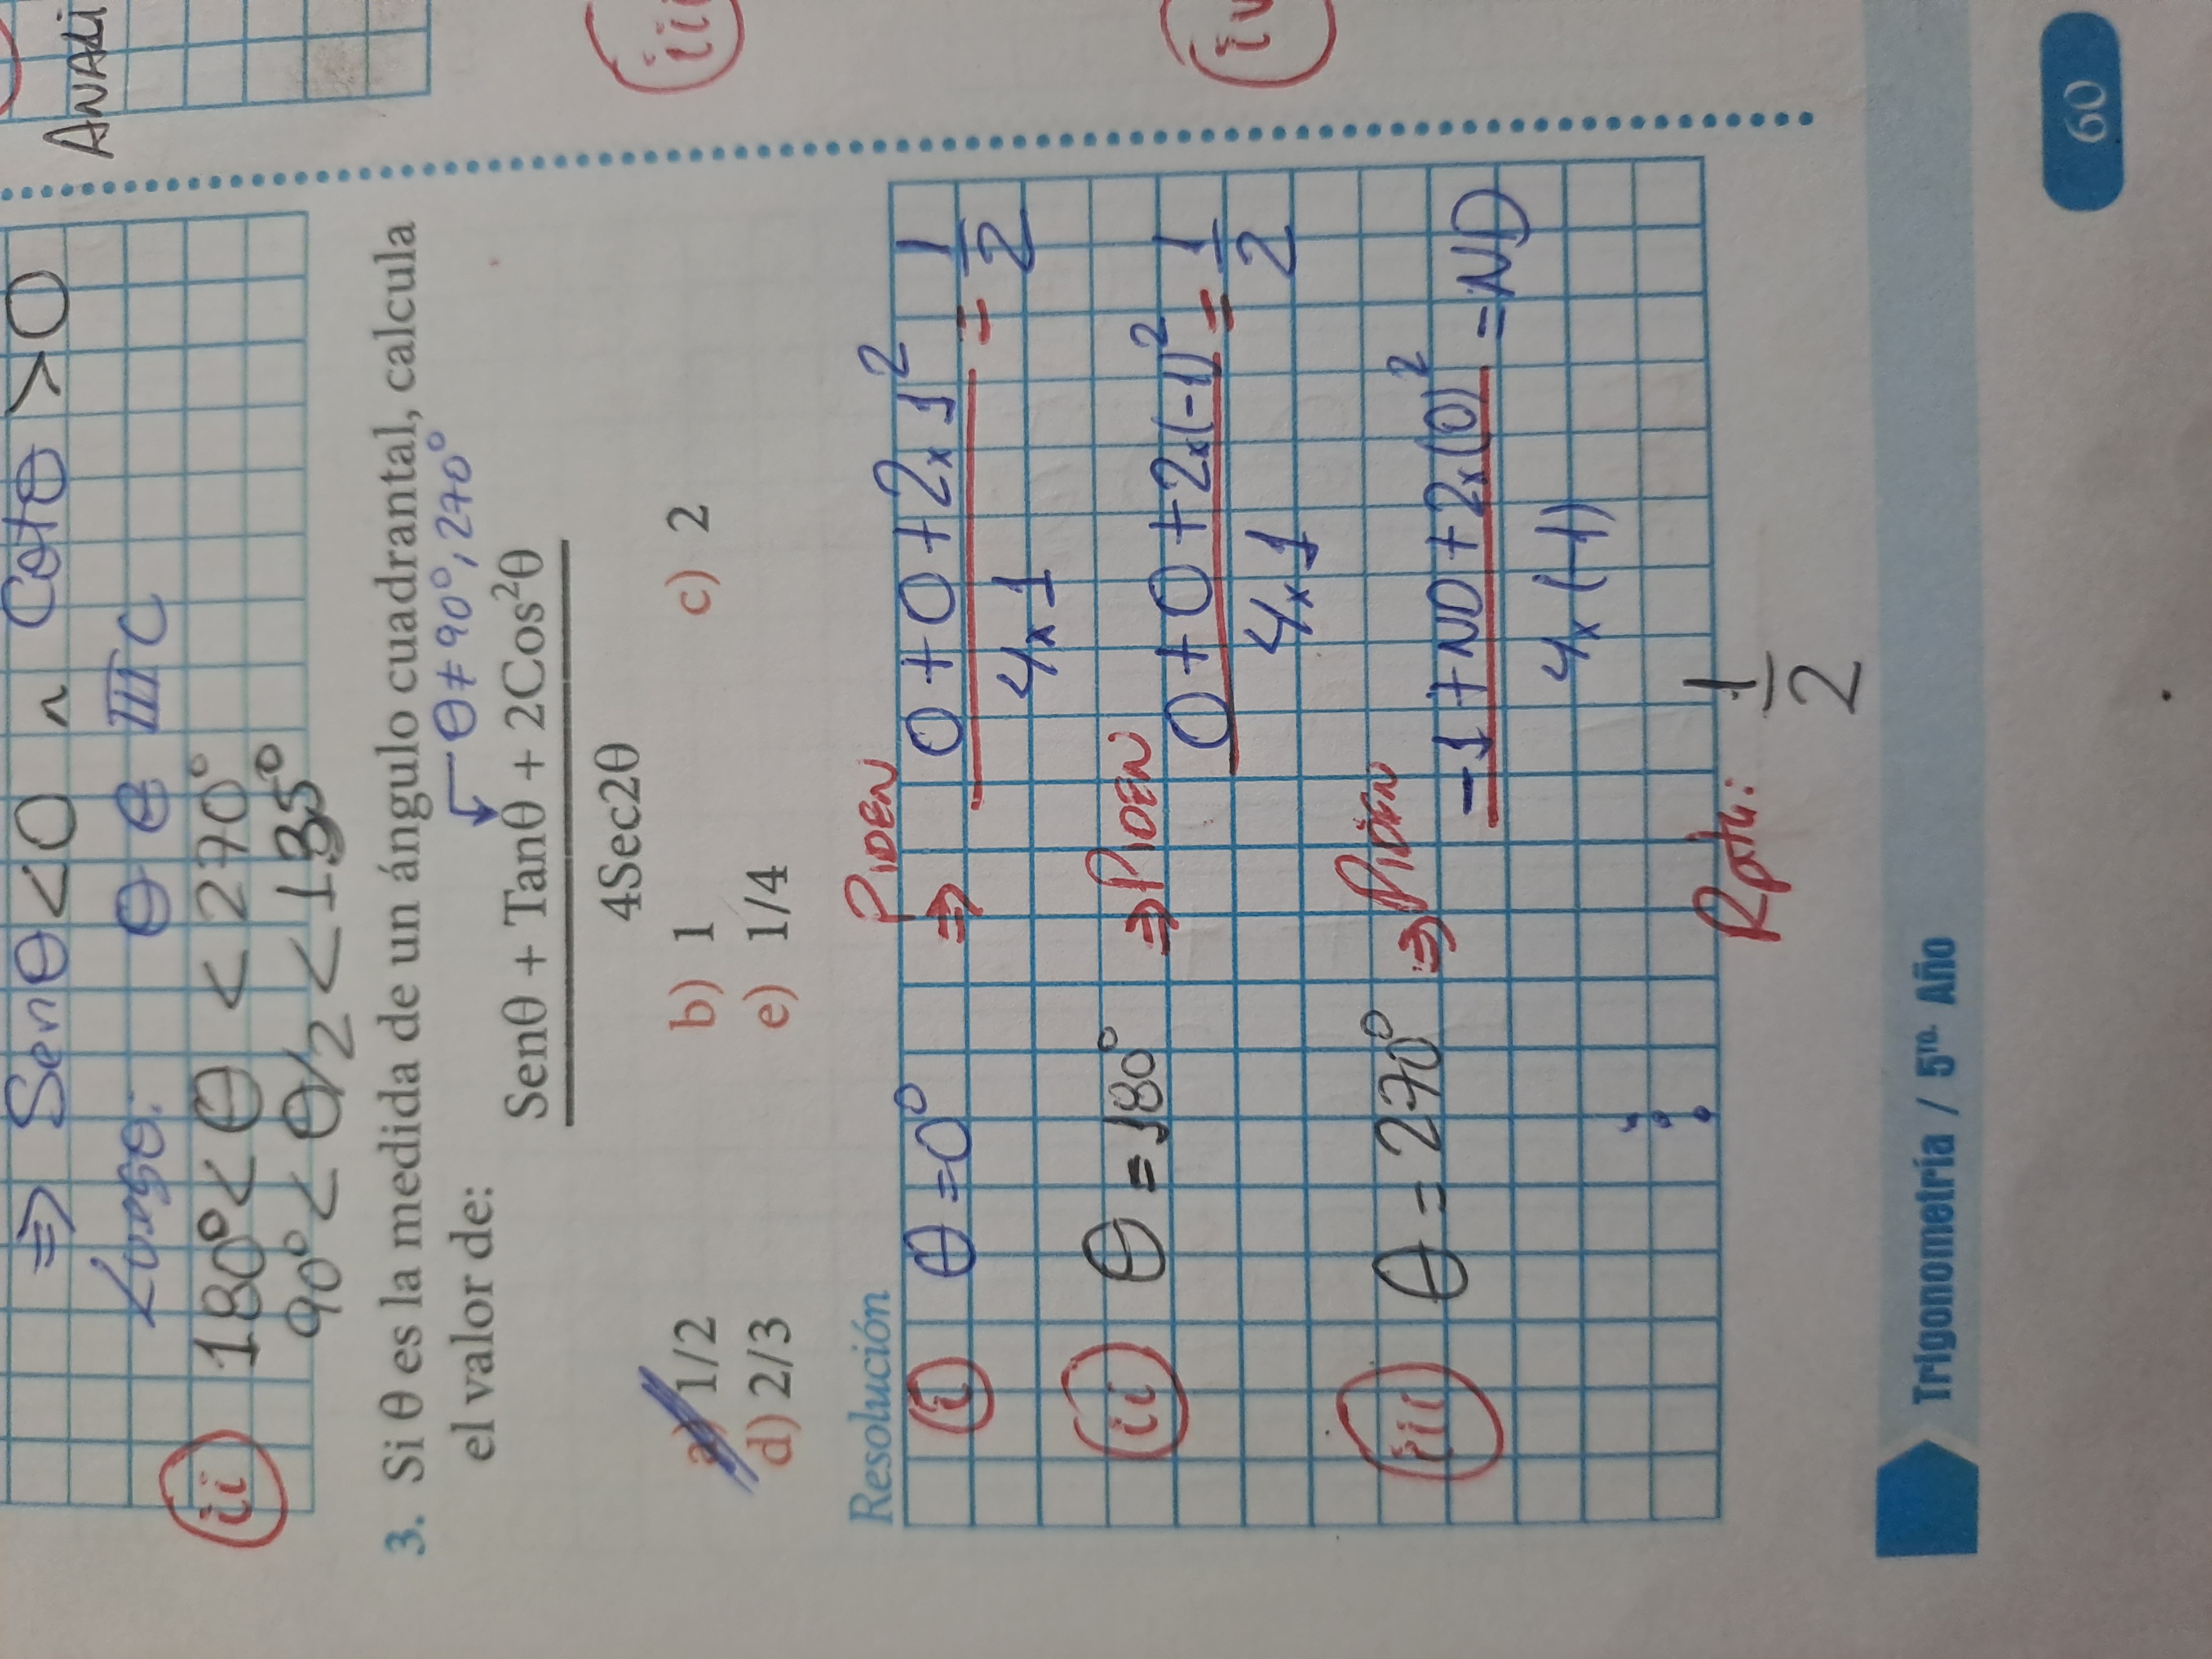 ⇒ Senθ < 0 ∧ Cotθ > 0
Luego: θ ∈ III C
ii 180° < θ < 270°
90° < θ/2 < 135°
3. Si θ es la medida de un ángulo cuadrantal, calcula
el valor de:
θ ≠ 90°, 270°
Senθ + Tanθ + 2Cos²θ
4Sec2θ
a) 1/2 b) 1 c) 2
d) 2/3 e) 1/4
Resolución
i θ = 0° ⇒ PIDEN
0 + 0 + 2x1² = 1/2
4x1
ii θ = 180° ⇒ PIDEN
0 + 0 + 2x(-1)² = 1/2
4x1
iii θ = 270° ⇒ PIDEN
-1 + ND + 2x(0)² = ND
4x(-1)
Rpta: 1/2
Trigonometría / 5TO. Año
60
iii